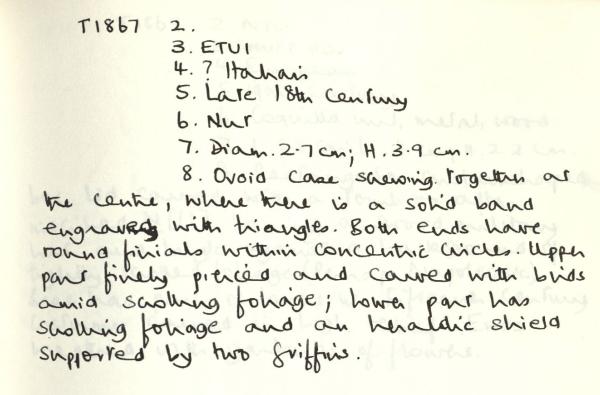 T1867 2.
3. ETUI
4. ? Italian
5. Late 18th Century
6. Nut
7. Diam. 2.7cm; H. 3.9 cm.
8. Ovoid case screwing together at
the centre, where there is a solid band
engraved with triangles. Both ends have
round finials within concentric circles. Upper
part finely pierced and carved with birds
amid scrolling foliage; lower part has
scrolling foliage and an heraldic shield
supported by two griffins.